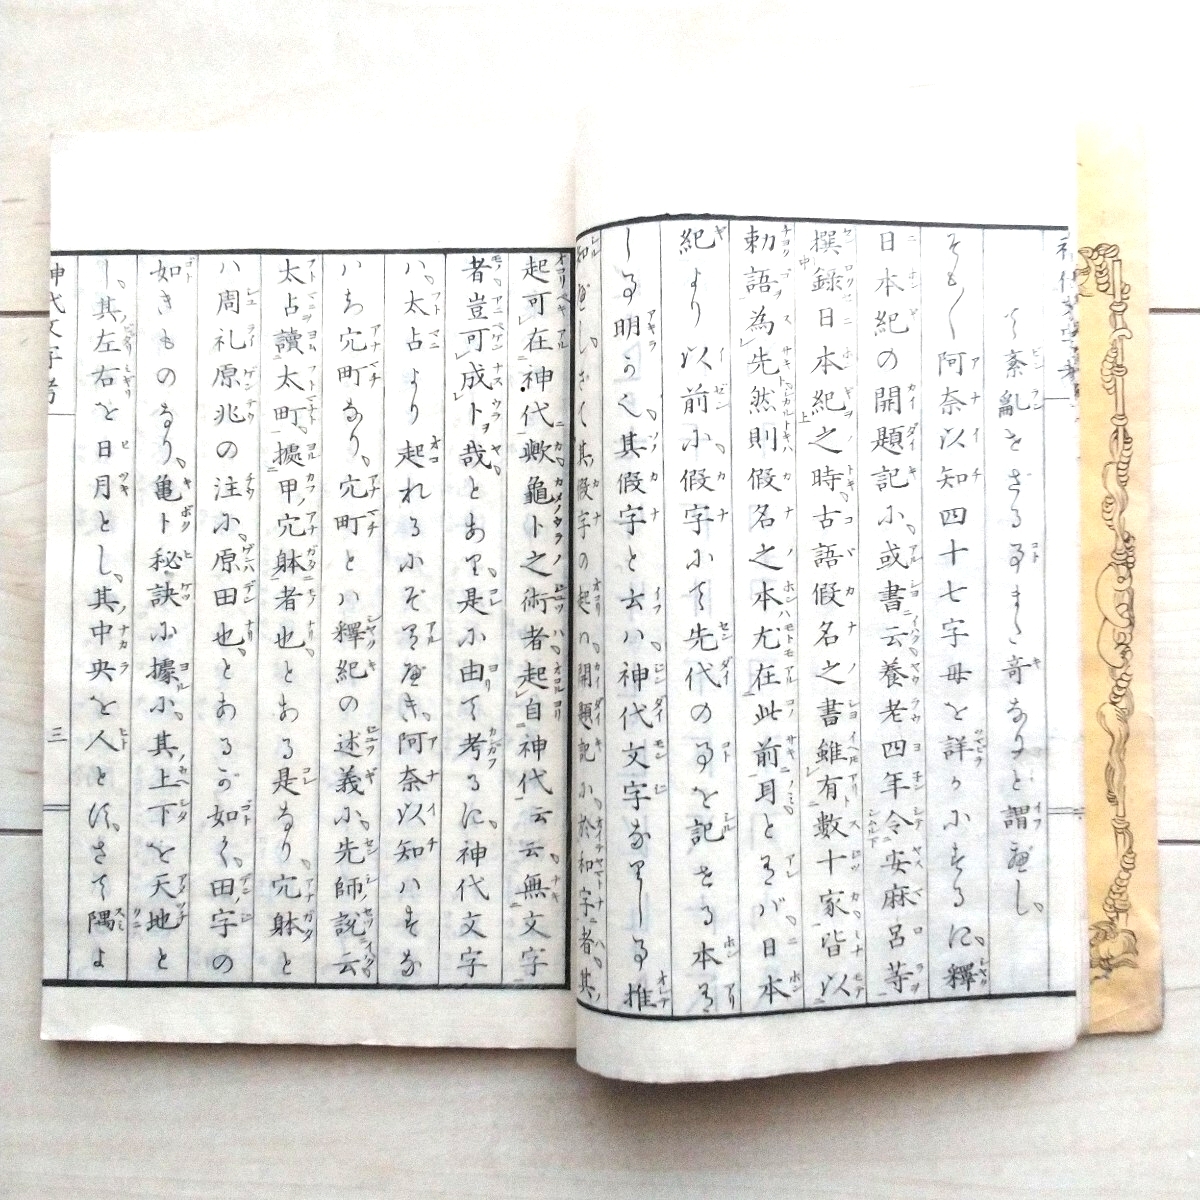 て紊亂をざる事まゝ奇なりと謂べし
そも〳〵阿奈以知四十七字母を詳かにするに釋
日本紀の開題記に或書云養老四年令安麻呂等
撰録日本紀之時古語假名之書雖有數十家皆以
勅語為先然則假名之本尤在此前耳とあれバ日本
紀より以前に假字にて先代の事を記せる本有
し事明か也其假字と云ハ神代文字なりし事推
知べし
起可在神代歟龜卜之術者起自神代云云無文字
者豈可成卜哉とあり是に由て考るに神代文字
ハ太占より起れるにぞあるべき阿奈以知ハすな
ハち穴町なり穴町とハ釋紀の述義に先師説云
太占讀太町據甲穴躰者也とある是なり穴躰と
ハ周礼原兆の注に原田也とあるが如く田字の
如きものなり亀卜秘訣に據に其上下を天地と
し其左右を日月とし其中央を人とすさて隅よ
神代文字考
三